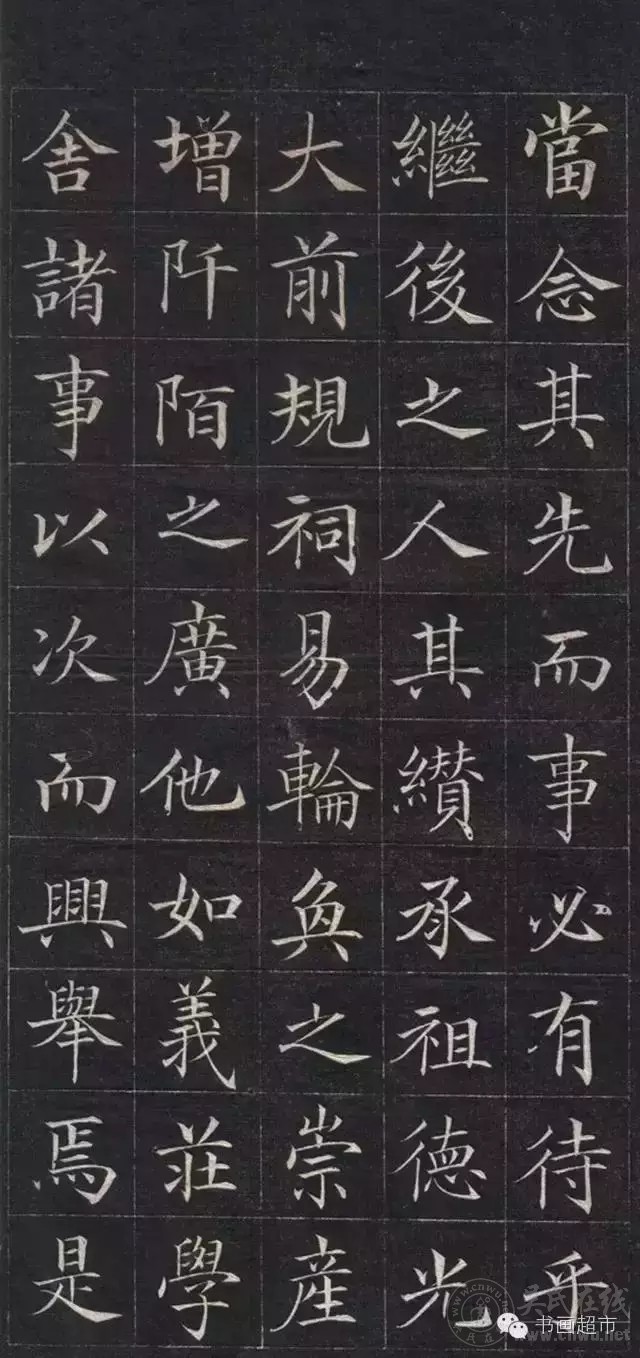 當念其先而事必有待乎
繼後之人其纘承祖德光
大前規祠易輪奐之崇產
增阡陌之廣他如義莊學
舍諸事以次而興舉焉是
吴氏在线
www.cnwu.net
书画超市